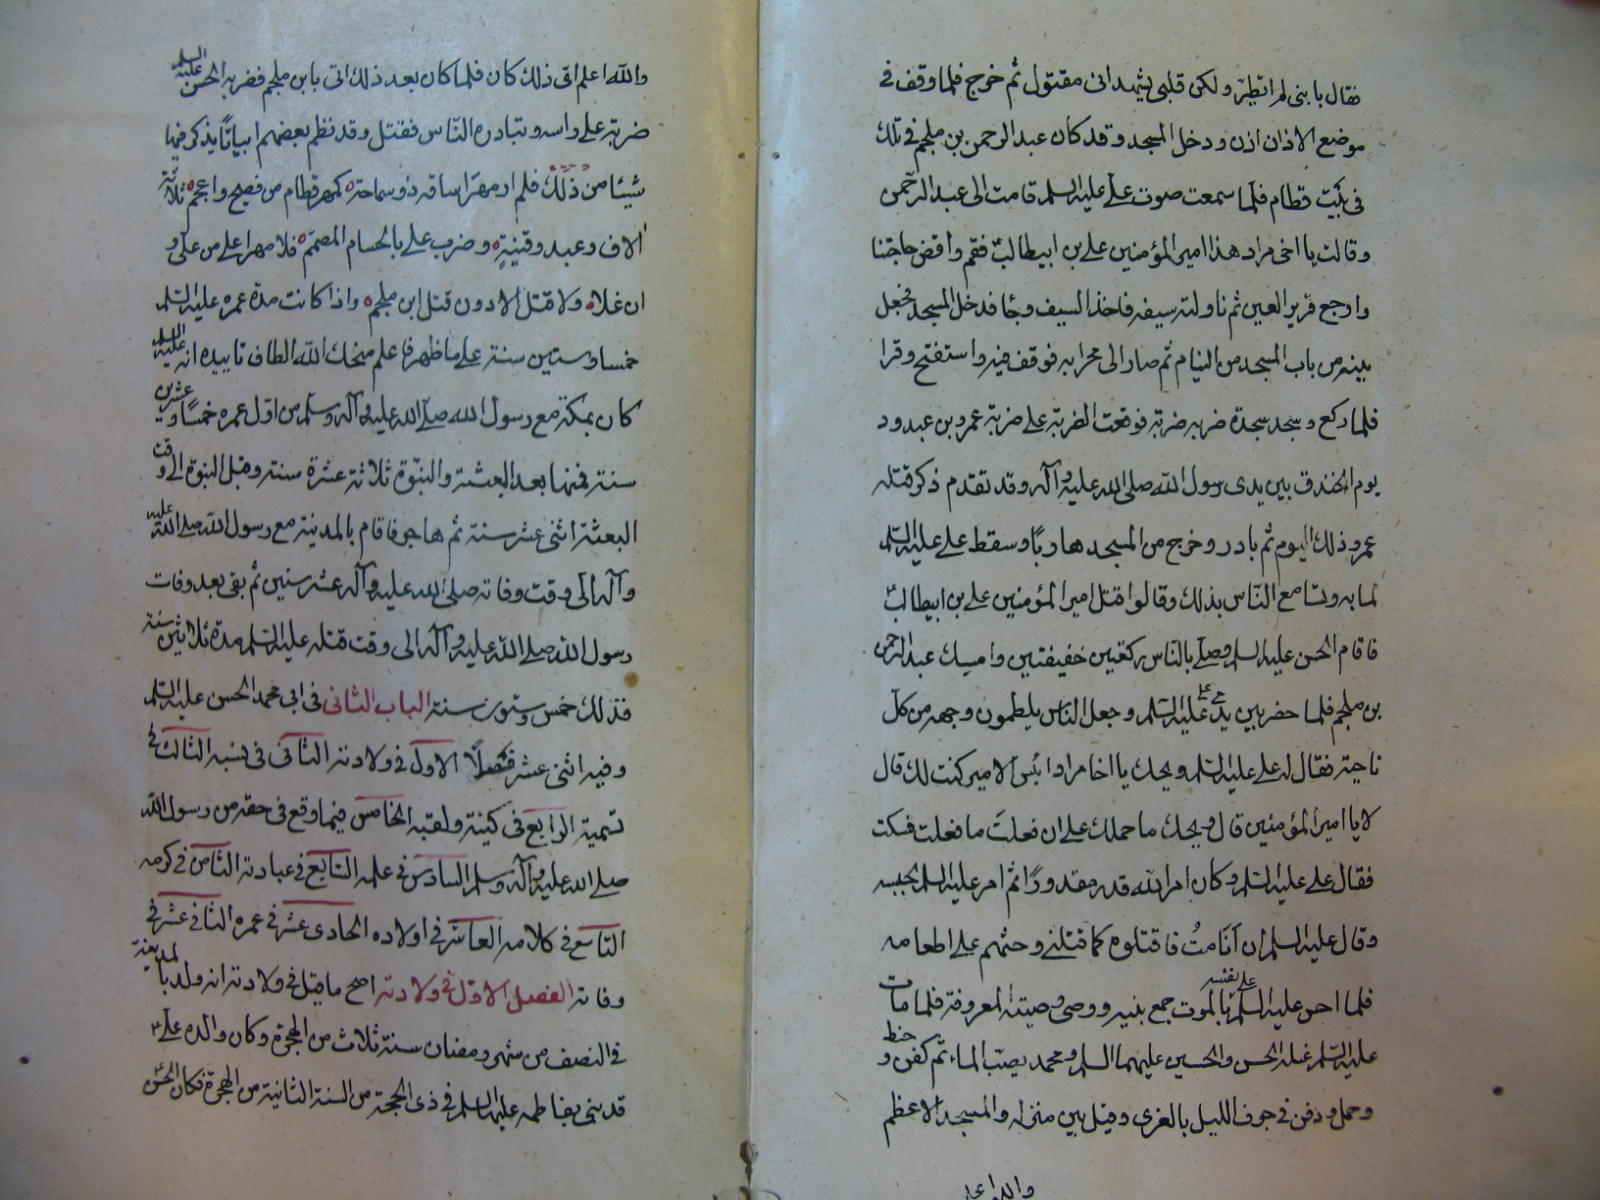 فقال يا بنى لم اتطيّر ولكن قلبى يشهد انى مقتول ثم خرج فلما وقف فى
موضع الاذان اذن ودخل المسجد وقد كان عبد الرحمن بن ملجم فى تلك
فى بيت قطام فلما سمعت صوت على عليه السلم قامت الى عبد الرحمن
وقالت يا اخى مراد هذا امير المؤمنين على بن ابيطالب فقم واقض حاجتنا
وارجع قرير العين ثم ناولته سيفه فاخذ السيف وجاء فدخل المسجد فجعل
بينه من باب المسجد من النيام ثم صار الى محرابه فوقف فيه واستفتح وقرا
فلما ركع وسجد سجدة ضربه ضربة فوقعت الضربة على ضربة عمرو بن عبدود
يوم الخندق بين يدى رسول الله صلى الله عليه وآله وقد تقدم ذكر قتله
عمرو ذلك اليوم ثم بادر وخرج من المسجد هاربًا وسقط على عليه السلم
لما به وتسامع الناس بذلك وقالوا قتل امير المؤمنين على بن ابيطالب
فاقام الحسن عليه السلم وصلى بالناس ركعتين خفيفتين وامسك عبد الرحمن
بن ملجم فلما حضر بين يدى على عليه السلم وجعل الناس يلطمون وجهه من كل
ناحية فقال له على عليه السلم ويحك يا اخا مراد ابئس الامير كنت لك قال
لا يا امير المؤمنين قال ويحك ما حملك على ان فعلت ما فعلت فسكت
فقال على عليه السلم وكان امر الله قدرا مقدورًا ثم امر عليه السلم بحبسه
وقال عليه السلم ان أنا متُ فاقتلوه كما قتلنى وحثهم على اطعامه
فلما احس عليه السلم على نفسه بالموت جمع بنيه ووصى وصيته المعروفة فلما مات
عليه السلم غسله الحسن والحسين عليهما السلم ومحمد يصب الماء ثم كفن و حنط
وحمل ودفن فى جوف الليل بالغرى وقيل بين منزله والمسجد الاعظم
والله اعلم
والله اعلم اى ذلك كان فلما كان بعد ذلك اتى بابن ملجم فضربه الحسن عليه السلم
ضربة على راسه وتبادره الناس فقتل وقد نظم بعضهم ابياتًا يذكر فيها
شيئا من ذلك فلم ار مهرا ساقه ذو سماحة كمهر قطام من فصيح واعجم ثلاثة
الاف وعبد وقينةٍ وضرب على بالحسام المصمّم فلا مهر اعلى من على و
ان غلا ولا قتل الا دون قتل ابن ملجم واذا كانت مدة عمره عليه السلم
خمسا وستين سنة على ما ظهر فاعلم منحك الله الطاف تاييده انه عليه السلم
كان بمكة مع رسول الله صلى الله عليه وآله وسلم من اول عمره خمسًا وعشرين
سنة فمنها بعد البعثة والنبوّة ثلاثة عشرة سنة وقبل النبوة الى وقت
البعثة اثنى عشر سنة ثم هاجر فاقام بالمدينة مع رسول الله صلى الله عليه
وآله الى وقت وفاته صلى الله عليه وآله عشر سنين ثم بقى بعد وفات
رسول الله صلى الله عليه وآله الى وقت قتله عليه السلم مدة ثلاثين سنة
فذلك خمس وستون سنة الباب الثانى فى ابى محمد الحسن عليه السلم
وفيه اثنى عشر فصلًا الاول فى ولادته الثانى فى نسبه الثالث فى
تسميته الرابع فى كنيته ولقبه الخامس فيما وقع فى حقه من رسول الله
صلى الله عليه وآله وسلم السادس فى علمه السابع فى عبادته الثامن فى كرمه
التاسع فى كلامه العاشر فى اولاده الحادى عشر فى عمره الثانى عشر فى
وفاته الفصل الاول فى ولادته اصح ما قيل فى ولادته انه ولد بالمدينة
فى النصف من شهر رمضان سنة ثلاث من الهجرة وكان والده على
قد بنى بفاطمه عليها السلم فى ذى الحجة من السنة الثانية من الهجرة فكان الحسن